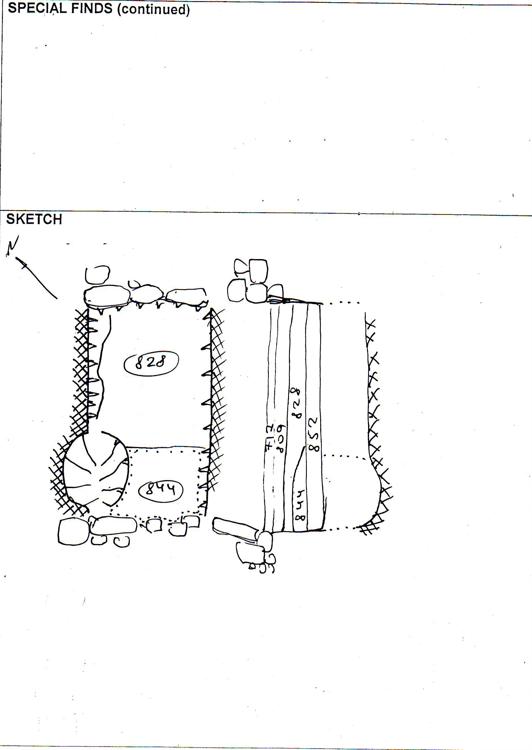 SPECIAL FINDS (continued)
SKETCH
N
828
844
717
809
828
844
852